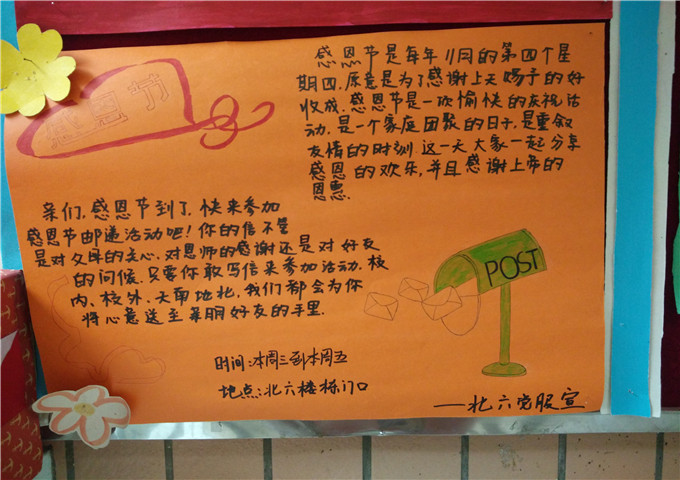 感恩节
感恩节是每年11月的第四个星
期四.原意是为了感谢上天赐予的好
收成.感恩节是一次愉快的庆祝活
动.是一个家庭团聚的日子,是重叙
友情的时刻.这一天大家一起分享
感恩的欢乐,并且感谢上帝的
恩惠.
亲们,感恩节到了,快来参加
感恩节邮递活动吧!你的信不管
是对父母的关心.对恩师的感谢还是对好友
的问候.只要你敢写信来参加活动.校
内、校外.天南地北,我们都会为你
将心意送至亲朋好友的手里.
POST
时间:本周三到本周五
地点:北六楼栋门口
——北六党服宣